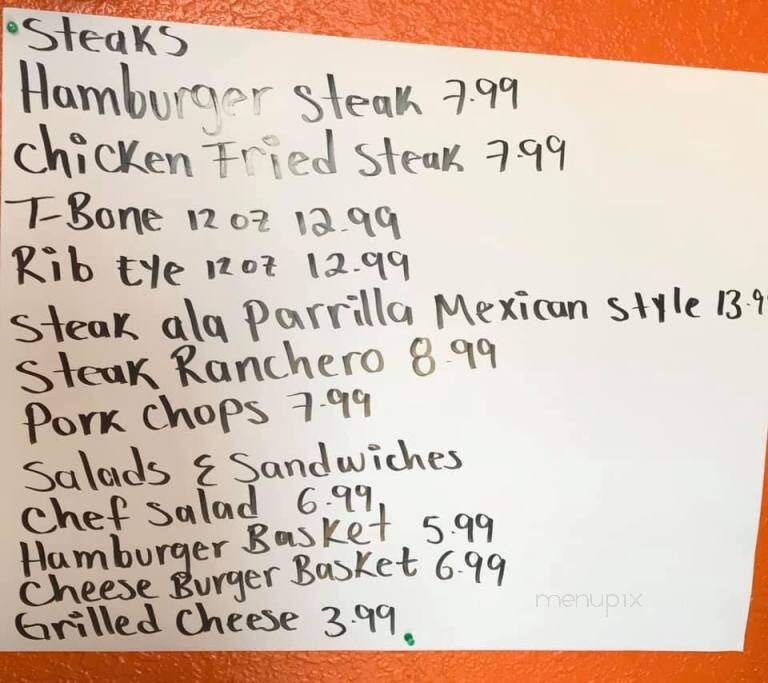 Steaks
Hamburger Steak 7.99
Chicken Fried Steak 7.99
T-Bone 12 oz 12.99
Rib Eye 12 oz 12.99
Steak ala Parrilla Mexican Style 13.9
Steak Ranchero 8.99
Pork Chops 7.99
Salads & Sandwiches
Chef Salad 6.99
Hamburger Basket 5.99
Cheese Burger Basket 6.99
Grilled Cheese 3.99
menupix